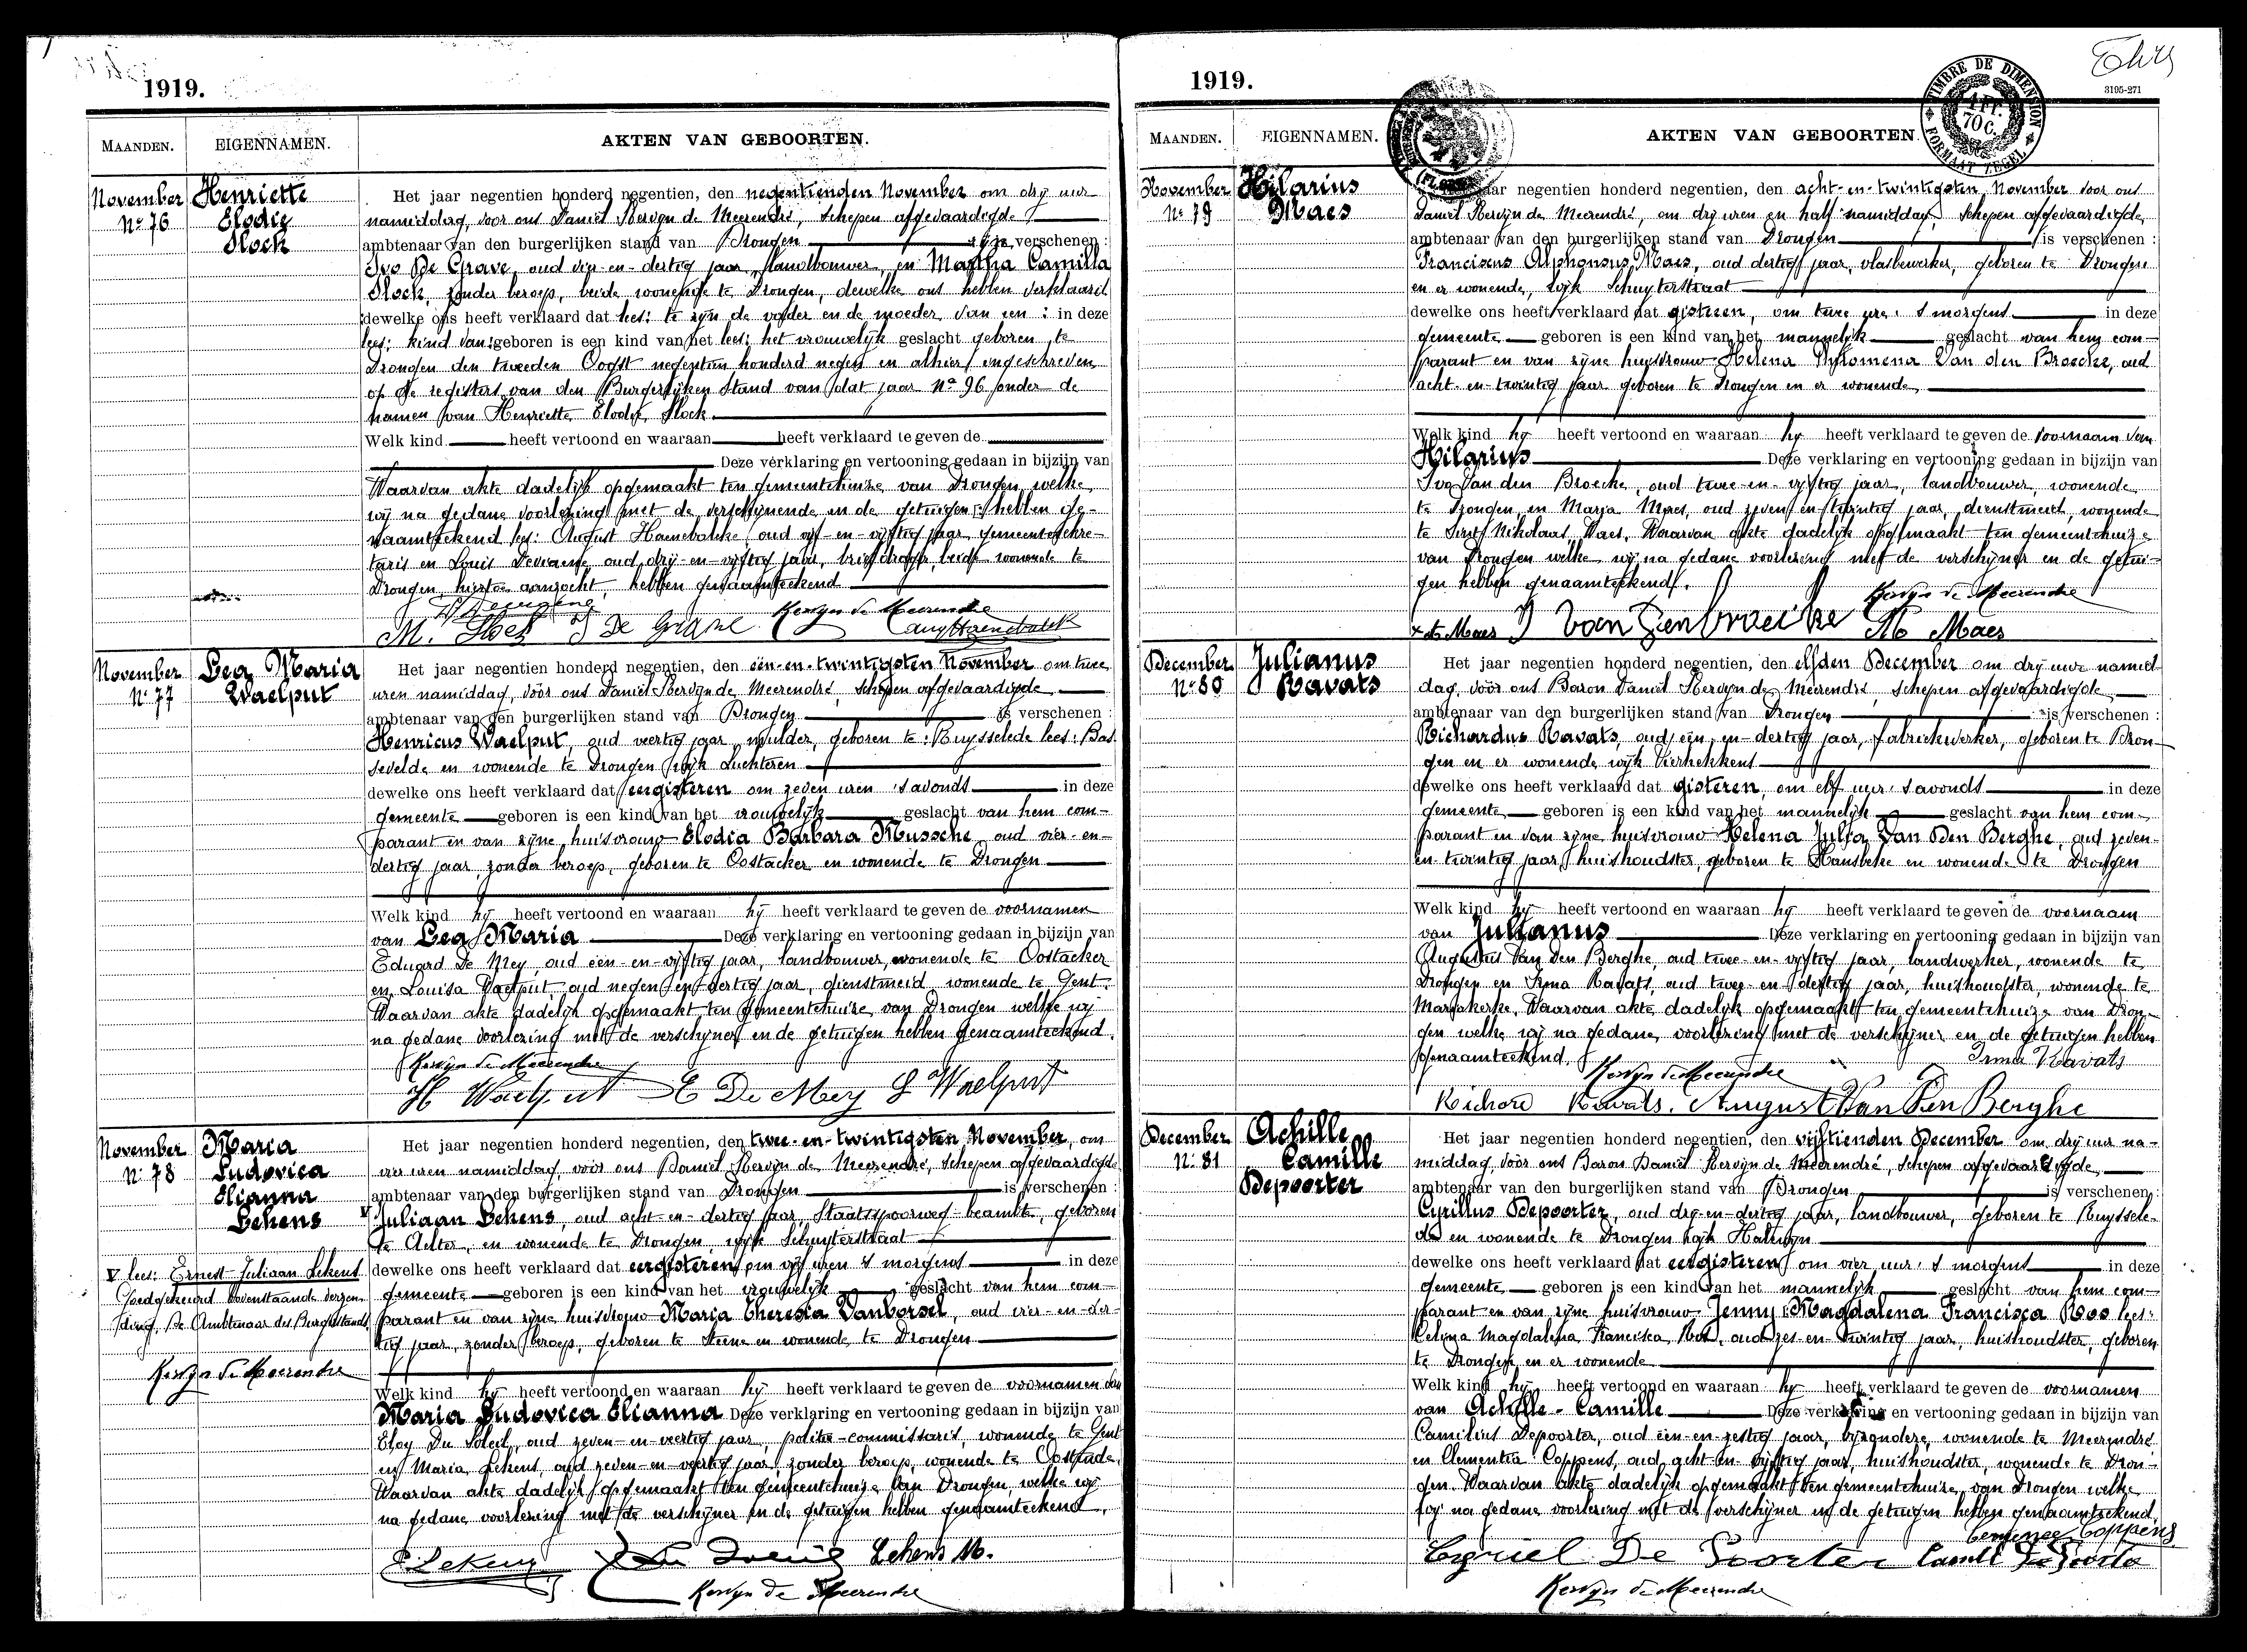 1919.
MAANDEN. EIGENNAMEN. AKTEN VAN GEBOORTEN.
November
No 76
Henriette
Elodie
Slock
Het jaar negentien honderd negentien, den negentienden November om drij uur
namiddag, voor ons Daniel Kervyn de Meerendré, Schepen afgevaardigde
ambtenaar van den burgerlijken stand van Drongen verschenen :
Ivo De Grave, oud vier-en-dertig jaar, landbouwer, en Martha Camilla
Slock, zonder beroep, beide wonende te Drongen, dewelke ons hebben verklaard
dewelke ons heeft verklaard dat lees: te zijn de vader en de moeder van een : in deze
lees: kind van geboren is een kind van het lees: het vrouwelijk geslacht geboren te
Drongen den tweeden Oogst negentien honderd negen en alhier ingeschreven
op de registers van den Burgerlijken Stand van dat jaar No 96 onder de
namen van Henriette Elodie Slock.
Welk kind heeft vertoond en waaraan heeft verklaard te geven de
Deze verklaring en vertooning gedaan in bijzijn van
Waarvan akte dadelijk opgemaakt ten gemeentehuize van Drongen welke
wij na gedane voorlezing met de verschijnende en de getuigen : hebben ge-
naamteekend lees: August Haenebalcke, oud vijf-en-vijftig jaar, gemeentesekre-
taris en Louis oud drij-en-vijftig jaar, briefdrager, beide wonende te
Drongen, hiertoe aanzocht, hebben genaamteekend
Kervyn de Meerendre
M. Slock I De Grave Aug Haenebalck
November
No 77
Lea Maria
Waelput
Het jaar negentien honderd negentien, den een-en-twintigsten November om twee
uren namiddag, vóór ons Daniel Kervyn de Meerendré, Schepen afgevaardigde
ambtenaar van den burgerlijken stand van Drongen is verschenen :
Henricus Waelput, oud veertig jaar, mulder, geboren te : Ruysselede lees: Bas-
sevelde en wonende te Drongen wijk Luchteren
dewelke ons heeft verklaard dat eergisteren om zeven uren 's avonds in deze
gemeente geboren is een kind van het vrouwelijk geslacht van hem com-
parant en van zijne huisvrouw Elodia Barbara Mussche, oud vier-en-
dertig jaar, zonder beroep, geboren te Oostacker en wonende te Drongen
Welk kind hij heeft vertoond en waaraan hij heeft verklaard te geven de voornamen
van Lea Maria Deze verklaring en vertooning gedaan in bijzijn van
Eduard De Mey, oud een-en-vijftig jaar, landbouwer, wonende te Oostacker
en Louisa Waelput, oud negen-en-dertig jaar, dienstmeid wonende te Gent.
Waarvan akte dadelijk opgemaakt ten gemeentehuize van Drongen welke wij
na gedane voorlezing met de verschijner en de getuigen hebben genaamteekend.
Kervyn de Meerendre
H Waelput E De Mey L Waelput
November
No 78
Maria
Ludovica
Elianna
Lekens
V lees: Ernest Juliaan Lekens
Goedgekeurd bovenstaande verzen-
ding, De Ambtenaar des Burg. Stands
Kervyn de Meerendre
Het jaar negentien honderd negentien, den twee-en-twintigsten November, om
vier uren namiddag vóór ons Daniel Kervyn de Meerendré, Schepen afgevaardigde
ambtenaar van den burgerlijken stand van Drongen is verschenen :
V Juliaan Lekens, oud acht-en-dertig jaar, Staatsspoorweg-beambte, geboren
te Aelter, en wonende te Drongen, wijk Schuyterstraat
dewelke ons heeft verklaard dat eergisteren om vijf uren 's morgens in deze
gemeente geboren is een kind van het vrouwelijk geslacht van hem com-
parant en van zijne huisvrouw Maria Theresia Vanborsel, oud vier-en-der-
tig jaar, zonder beroep, geboren te Steene en wonende te Drongen
Welk kind hij heeft vertoond en waaraan hij heeft verklaard te geven de voornamen van
Maria Ludovica Elianna Deze verklaring en vertooning gedaan in bijzijn van
Eloy Du Soleil, oud zeven-en-veertig jaar, politie-commissaris, wonende te Gent
en Maria Lekens, oud zeven-en-veertig jaar, zonder beroep, wonende te Oostende.
Waarvan akte dadelijk opgemaakt ten gemeentehuize van Drongen, welke wij
na gedane voorlezing met de verschijner en de getuigen hebben genaamteekend.
E. Lekens Lekens M.
Kervyn de Meerendre
1919.
TIMBRE DE DIMENSION
1 FR. 70 C.
FORMAAT ZEGEL
3195-271
MAANDEN. EIGENNAMEN. AKTEN VAN GEBOORTEN.
November
No 79
Hilarius
Maes
jaar negentien honderd negentien, den acht-en-twintigsten November voor ons
Daniel Kervyn de Meerendré, om drij uren en half namiddag, Schepen afgevaardigde,
ambtenaar van den burgerlijken stand van Drongen is verschenen :
Franciscus Alphonsus Maes, oud dertig jaar, vlasbewerker, geboren te Drongen
en er wonende, wijk Schuyterstraat
dewelke ons heeft verklaard dat gisteren, om twee ure 's morgens in deze
gemeente geboren is een kind van het mannelijk geslacht van hem com-
parant en van zijne huysvrouw Helena Philomena Van den Broecke, oud
acht-en-twintig jaar geboren te Drongen en er wonende,
Welk kind hij heeft vertoond en waaraan hij heeft verklaard te geven de voornaam van
Hilarius Deze verklaring en vertooning gedaan in bijzijn van
Ivo Van den Broecke, oud twee-en-vijftig jaar, landbouwer, wonende
te Drongen, en Maria Maes, oud zeven-en-twintig jaar, dienstmeid, wonende
te Sint Nikolaas Waes. Waarvan akte dadelijk opgemaakt ten gemeentehuize
van Drongen welke wij na gedane voorlezing met de verschijner en de getui-
gen hebben genaamteekend.
Kervyn de Meerendre
Maes I Van Den broecke M Maes
December
No 80
Julianus
Ravats
Het jaar negentien honderd negentien, den elfden December om drij ure namid-
dag, vóór ons Baron Daniel Kervyn de Meerendré, Schepen afgevaardigde
ambtenaar van den burgerlijken stand van Drongen is verschenen :
Richardus Ravats, oud een-en-dertig jaar, fabriekwerker, geboren te Dron-
gen en er wonende wijk Vierhekkens
dewelke ons heeft verklaard dat gisteren, om elf ure 's avonds in deze
gemeente geboren is een kind van het mannelijk geslacht van hem com-
parant en van zijne huisvrouw Helena Julia Van Den Berghe, oud zeven-
en-twintig jaar, huishoudster, geboren te Hansbeke en wonende te Drongen
Welk kind hij heeft vertoond en waaraan hij heeft verklaard te geven de voornaam
van Julianus Deze verklaring en vertooning gedaan in bijzijn van
Augustus Van Den Berghe, oud twee-en-vijftig jaar, landwerker, wonende te
Drongen en Irma Ravats, oud twee-en-dertig jaar, huishoudster, wonende te
Mariakerke. Waarvan akte dadelijk opgemaakt ten gemeentehuize van Dron-
gen welke wij na gedane voorlezing met de verschijner en de getuigen hebben
genaamteekend.
Irma Ravats
Kervyn de Meerendre
Richard Ravats. August Van Den Berghe
December
No 81
Achille
Camille
Depoorter
Het jaar negentien honderd negentien, den vijftienden December om drij uur na-
middag, vóór ons Baron Daniel Kervyn de Meerendré, Schepen afgevaardigde,
ambtenaar van den burgerlijken stand van Drongen is verschenen :
Cyrillus Depoorter, oud drij-en-dertig jaar, landbouwer, geboren te Ruyssele-
de en wonende te Drongen wijk Halewyn
dewelke ons heeft verklaard dat eergisteren om vier ure 's morgens in deze
gemeente geboren is een kind van het mannelijk geslacht van hem com-
parant en van zijne huisvrouw Jenny : Magdalena Francisca Roos lees:
Celina Magdalena Francisca Roos, oud zes-en-twintig jaar, huishoudster, geboren
te Drongen en er wonende
Welk kind hij heeft vertoond en waaraan hij heeft verklaard te geven de voornamen
van Achille-Camille Deze verklaring en vertooning gedaan in bijzijn van
Camilius Depoorter, oud een-en-zestig jaar, bijzondere, wonende te Meerendré
en Clementia Coppens, oud acht-en-vijftig jaar, huishoudster, wonende te Dron-
gen. Waarvan akte dadelijk opgemaakt ten gemeentehuize van Drongen welke
wij na gedane voorlezing met de verschijner en de getuigen hebben genaamteekend.
Coppens
Cyriel De Poorter Camil De Poorter
Kervyn de Meerendre